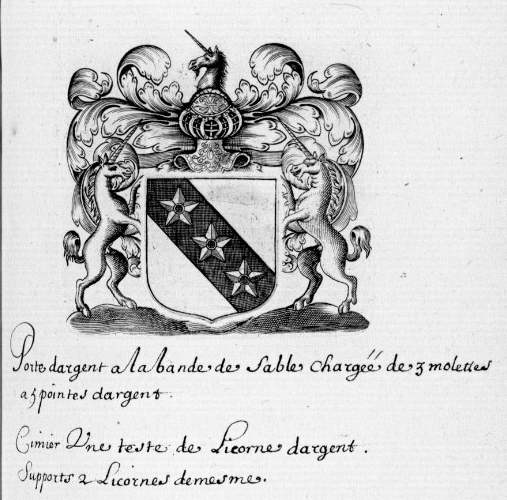 Porte dargent a la bande de Sable Chargéé de 3 molettes
a 5 pointes dargent.
Cimier Une teste de Licorne dargent.
Supports 2 Licornes de mesme.